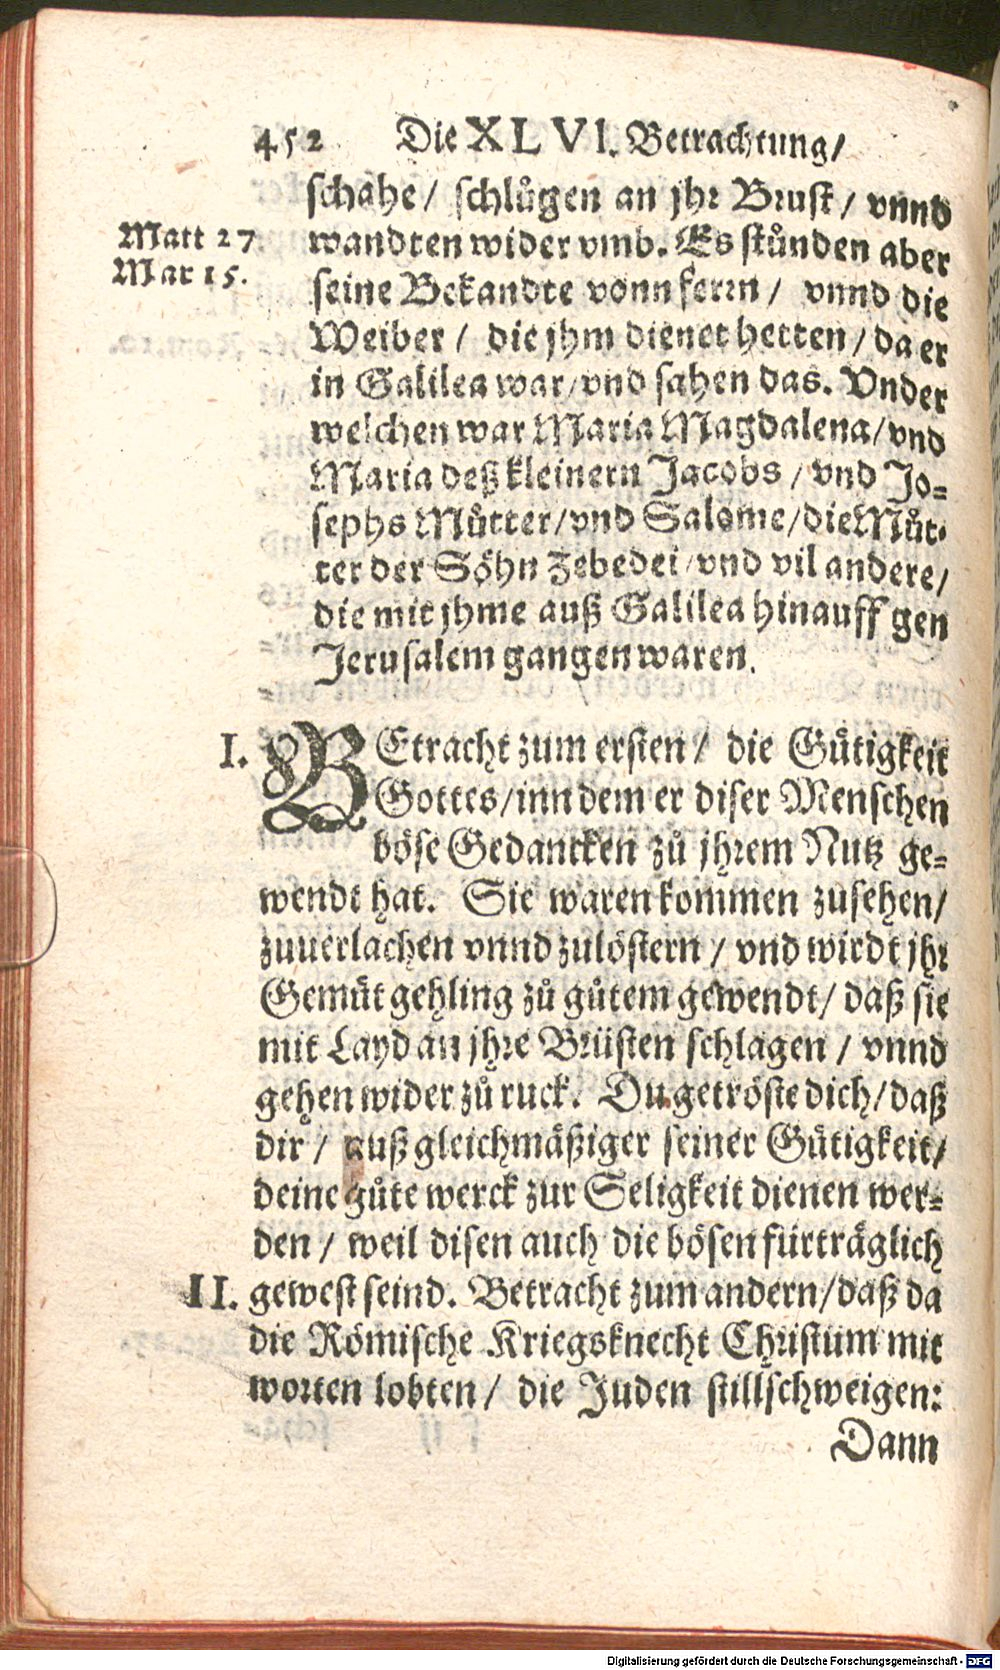 452 Die XLVI. Betrachtung/
schahe/ schlůgen an jhr Brust/ vnnd
Matt 27
wandten wider vmb. Es stůnden aber
Mar 15.
seine Bekandte vonn ferrn/ vnnd die
Weiber/ die jhm dienet hetten/ da er
in Galilea war/ vnd sahen das. Vnder
welchen war Maria Magdalena/ vnd
Maria deß kleinern Jacobs/ vnd Jo-
sephs Můtter/ vnd Salome/ die Můt-
ter der Söhn Zebedei/ vnd vil andere/
die mit jhme auß Galilea hinauff gen
Jerusalem gangen waren.
I. BEtracht zum ersten/ die Gütigkeit
Gottes/ inn dem er diser Menschen
böse Gedancken zů jhrem Nutz ge-
wendt hat. Sie waren kommen zusehen/
zuuerlachen vnnd zulöstern/ vnd wirdt jhr
Gemüt gehling zů gůtem gewendt/ daß sie
mit Layd an jhre Brüsten schlagen/ vnnd
gehen wider zů ruck. Du getröste dich/ daß
dir/ auß gleichmäßiger seiner Gütigkeit/
deine gůte werck zur Seligkeit dienen wer-
den/ weil disen auch die bösen fürträglich
II. gewest seind. Betracht zum andern/ daß da
die Römische Kriegsknecht Christum mit
worten lobten/ die Juden stillschweigen:
Dann
Digitalisierung gefördert durch die Deutsche Forschungsgemeinschaft - DFG